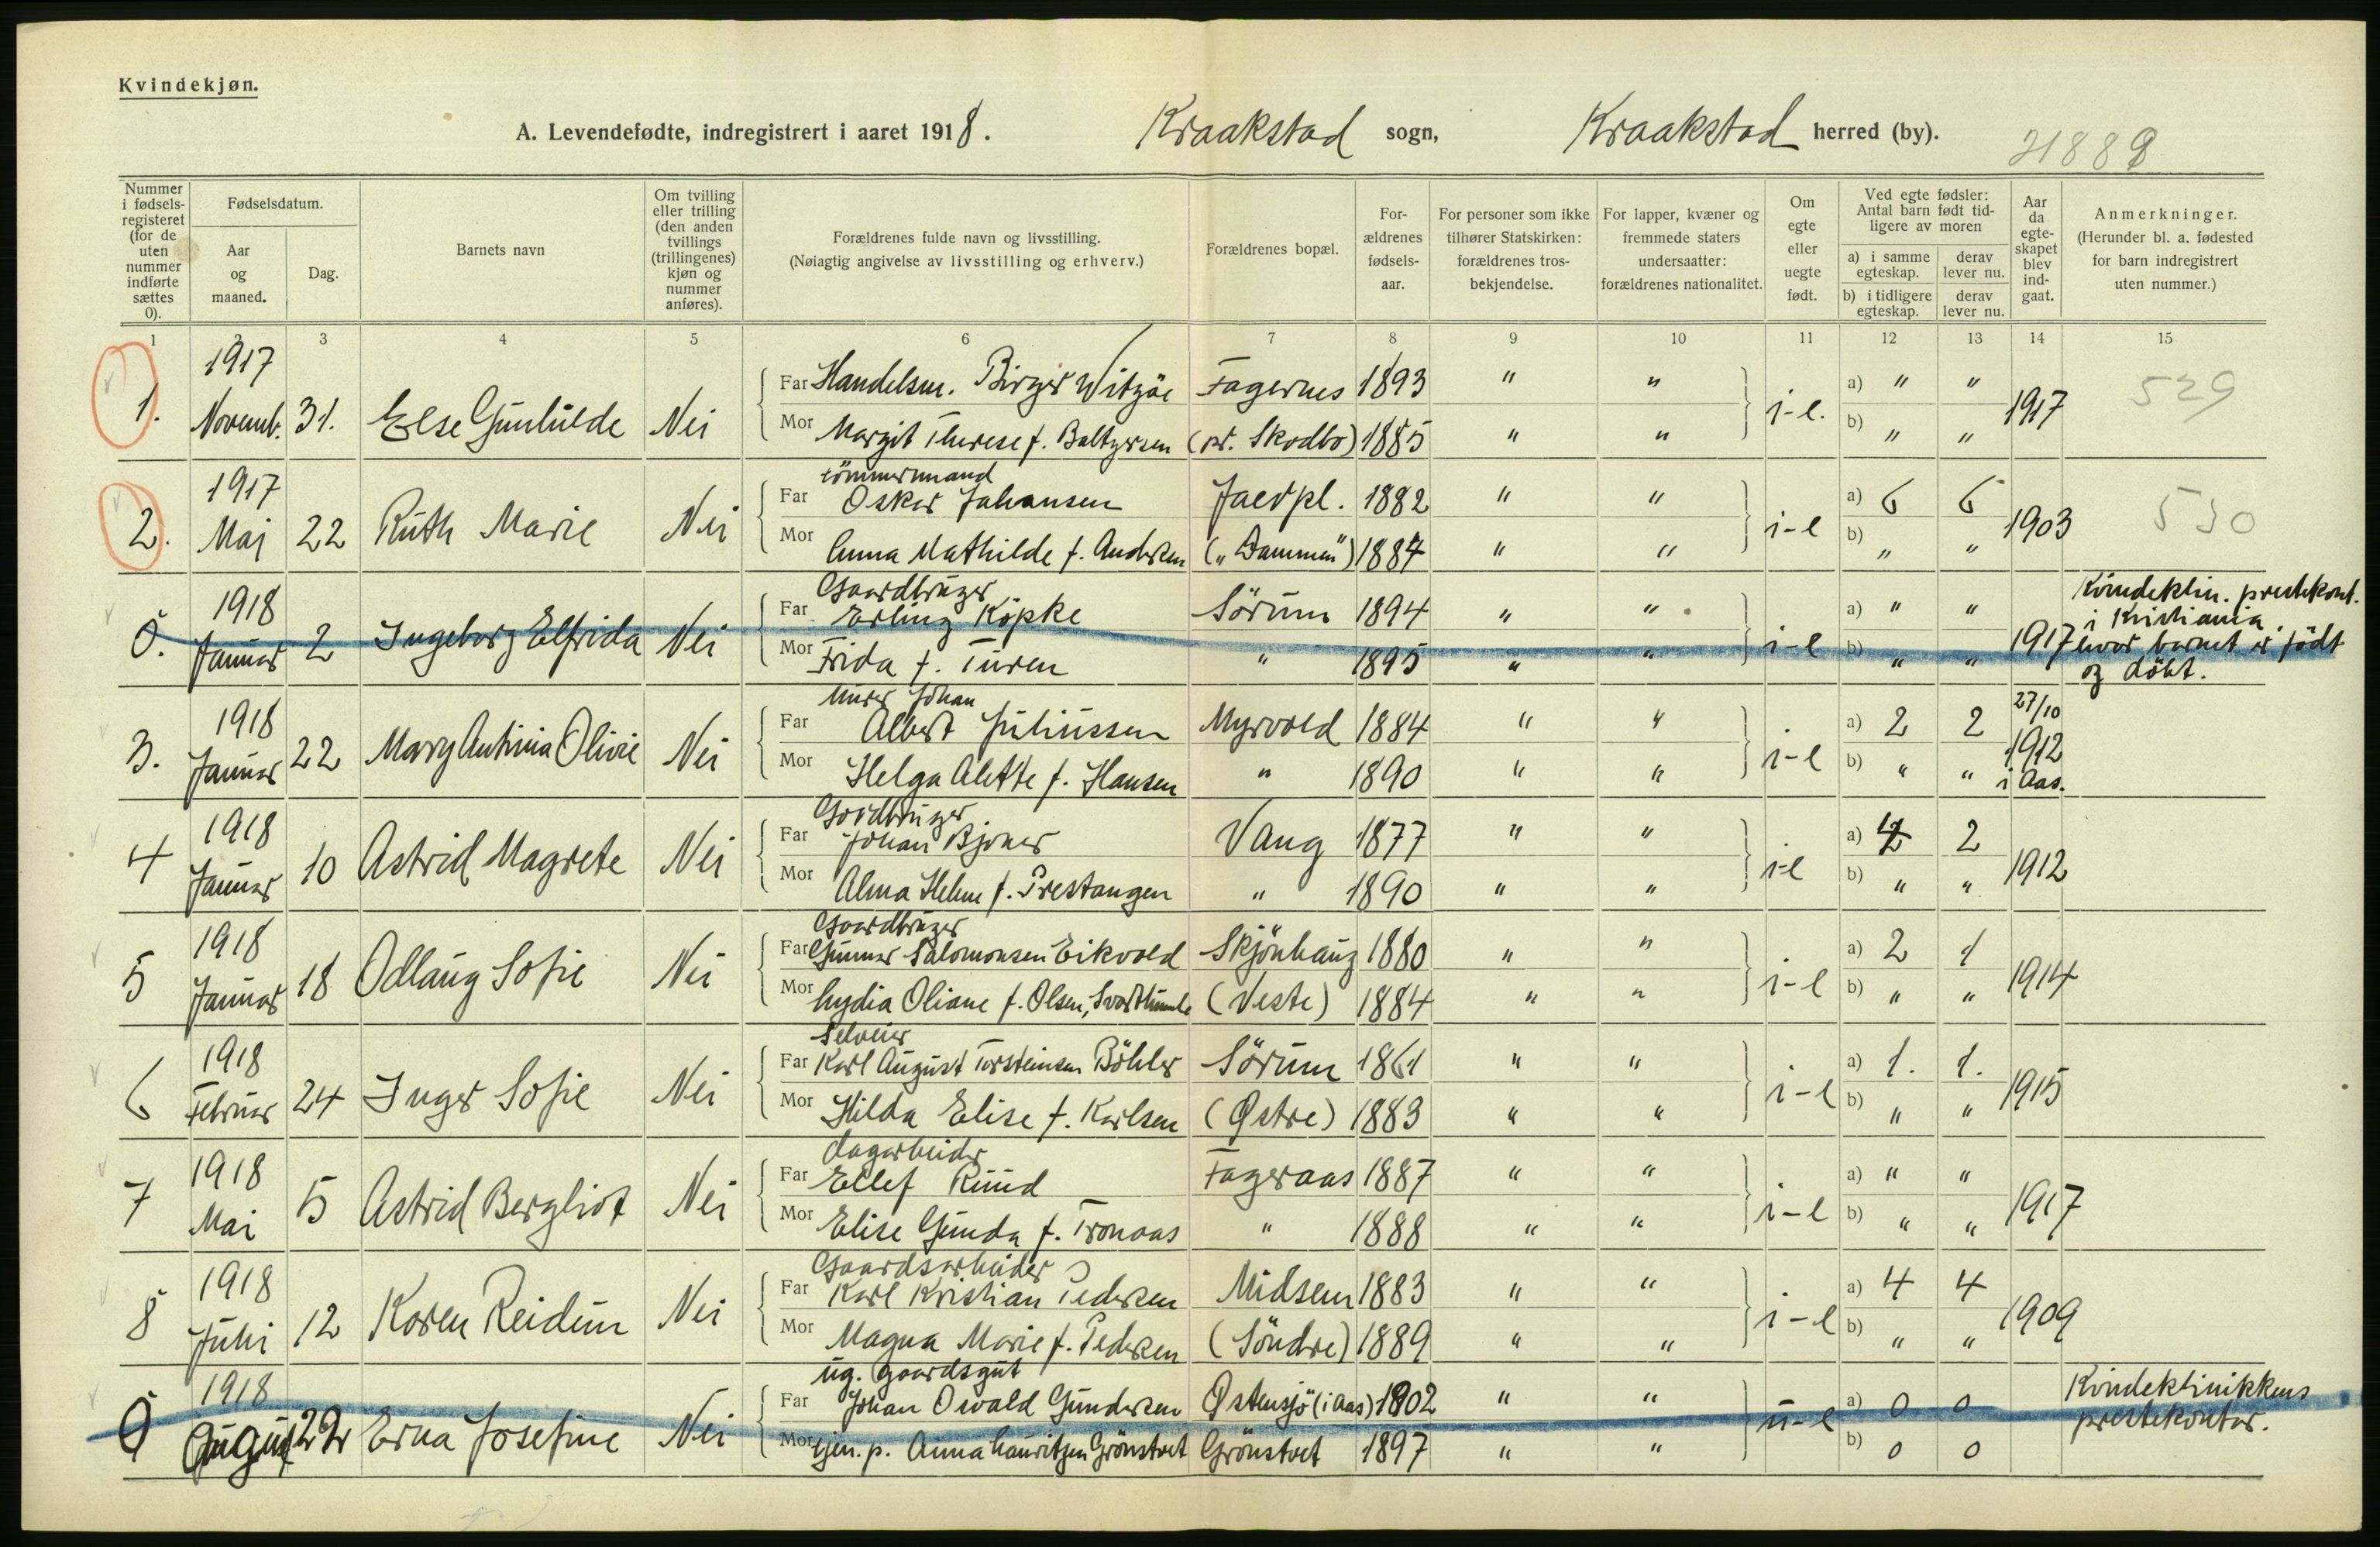 Kvindekjøn.
A. Levendefødte, indregistrert i aaret 1918. Kraakstad sogn, Kraakstad herred (by).
Nummer i fødselsregisteret (for de uten nummer indførte sættes 0).
Fødselsdatum.
Aar og maaned.
Dag.
Barnets navn
Om tvilling eller trilling (den anden tvillings (trillingenes) kjøn og nummer anføres).
Forældrenes fulde navn og livsstilling.
(Nøiagtig angivelse av livsstilling og erhverv.)
Forældrenes bopæl.
Forældrenes fødselsaar.
For personer som ikke tilhører Statskirken: forældrenes trosbekjendelse.
For lapper, kvæner og fremmede staters undersaatter: forældrenes nationalitet.
Om egte eller uegte født.
Ved egte fødsler: Antal barn født tidligere av moren
a) i samme egteskap. derav lever nu.
b) i tidligere egteskap. derav lever nu.
Aar da egteskapet blev indgaat.
Anmerkninger.
(Herunder bl. a. fødested for barn indregistrert uten nummer.)
1 2 3 4 5 6 7 8 9 10 11 12 13 14 15
1. 1917 Novemb. 31. Else Gunhilde Nei
Far Handelsm. Birger Witzöe Fagernes 1893 " " i-e. a) " " 1917 529
Mor Margit Therese f. Baltzersen (pr. Skodbo) 1885 " " b) " "
2. 1917 Mai 22 Ruth Marie Nei
tömmermand
Far Oskar Johansen Jaerpl. 1882 " " i-e a) 6 6 1903 530
Mor Anna Mathilde f. Andersen („Dammen") 1884 " " b) " "
0. 1918 Januar 2 Ingeborg Elfrida Nei
Gaardbruger
Far Erling Köpke Sörum 1894 " " i-e a) " " 1917
Mor Frida f. Turen " 1895 " " b) " "
Kvindeklin. prestekont. i Kristiania hvor barnet er födt og döbt.
3. 1918 Januar 22 Mary Antinia Olivie Nei
Murer Johan
Far Albert Juliussen Myrvold 1884 " " i-e a) 2 2 27/10 1912 i Aas.
Mor Helga Alette f. Hansen " 1890 " " b) " "
4 1918 Januar 10 Astrid Magrete Nei
Gardbruger
Far Johan Bjoner Vang 1877 " " i-e a) 2 2 1912
Mor Alma Helene f. Prestangen " 1890 " " b) " "
5 1918 Januar 18 Odlaug Sofie Nei
Gaardbruger
Far Gunnar Salomonsen Eikvold Skjönhaug 1880 " " i-e a) 2 1 1914
Mor Lydia Oliane f. Olsen, (Veste) 1884 " " b) " "
6 1918 Februar 24 Inger Sofie Nei
Selveier
Far Karl August Torsteinsen Böhler Sörum 1861 " " i-e a) 1. 1. 1915
Mor Hilda Elise f. Karlsen (Østre) 1883 " " b) " "
7 1918 Mai 5 Astrid Bergliot Nei
dagarbeider
Far Ellef Ruud Fageraas 1887 " " i-e a) " " 1917
Mor Elise Gunda f. Tronaas " 1888 " " b) " "
8 1918 Juli 12 Karen Reidun Nei
Gaardsarbeider
Far Karl Kristian Pedersen Midsem 1883 " " i-e a) 4 4 1909
Mor Magna Marie f. Pedersen (Söndre) 1889 " " b) " "
0 1918 August 22 Erna Josefine Nei
ug. gaardsgut
Far Johan Osvald Gundersen Østensjö (i Aas) 1902 " " u-e a) 0 0
Mor tjen. p. Anna Lauritzen Grönstvet Grönstvet 1897 " " b) 0 0
Kvindeklinikkens prestekontor.